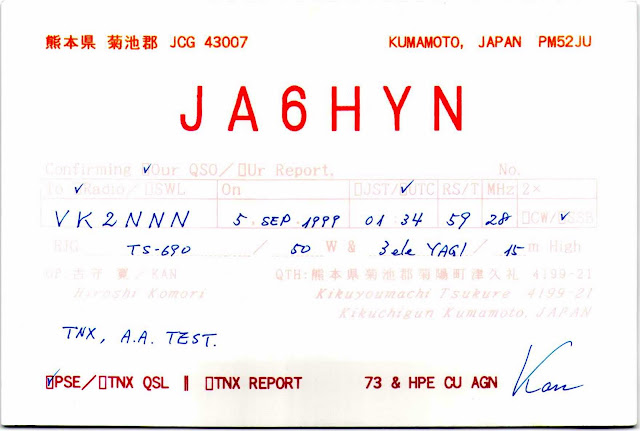 熊本県 菊池郡 JCG 43007 KUMAMOTO, JAPAN PM52JU
JA6HYN
Confirming ✓Our QSO/ ▯Ur Report. No.
To ✓Radio/ ▯SWL On ▯JST/✓UTC RS/T MHz 2×
VK2NNN 5. SEP. 1999 01 34 59 28 ▯CW/✓SSB
RIG TS-690 / 50 W & 3ele YAGI / 15 m High
OP: / KAN QTH:熊本県菊池郡菊陽町津久礼 4199-21
Hiroshi Komori Kikuyoumachi Tsukure 4199-21
Kikuchigun Kumamoto, JAPAN
TNX, A.A. TEST.
✓PSE/▯TNX QSL ‖ ▯TNX REPORT 73 & HPE CU AGN Kan